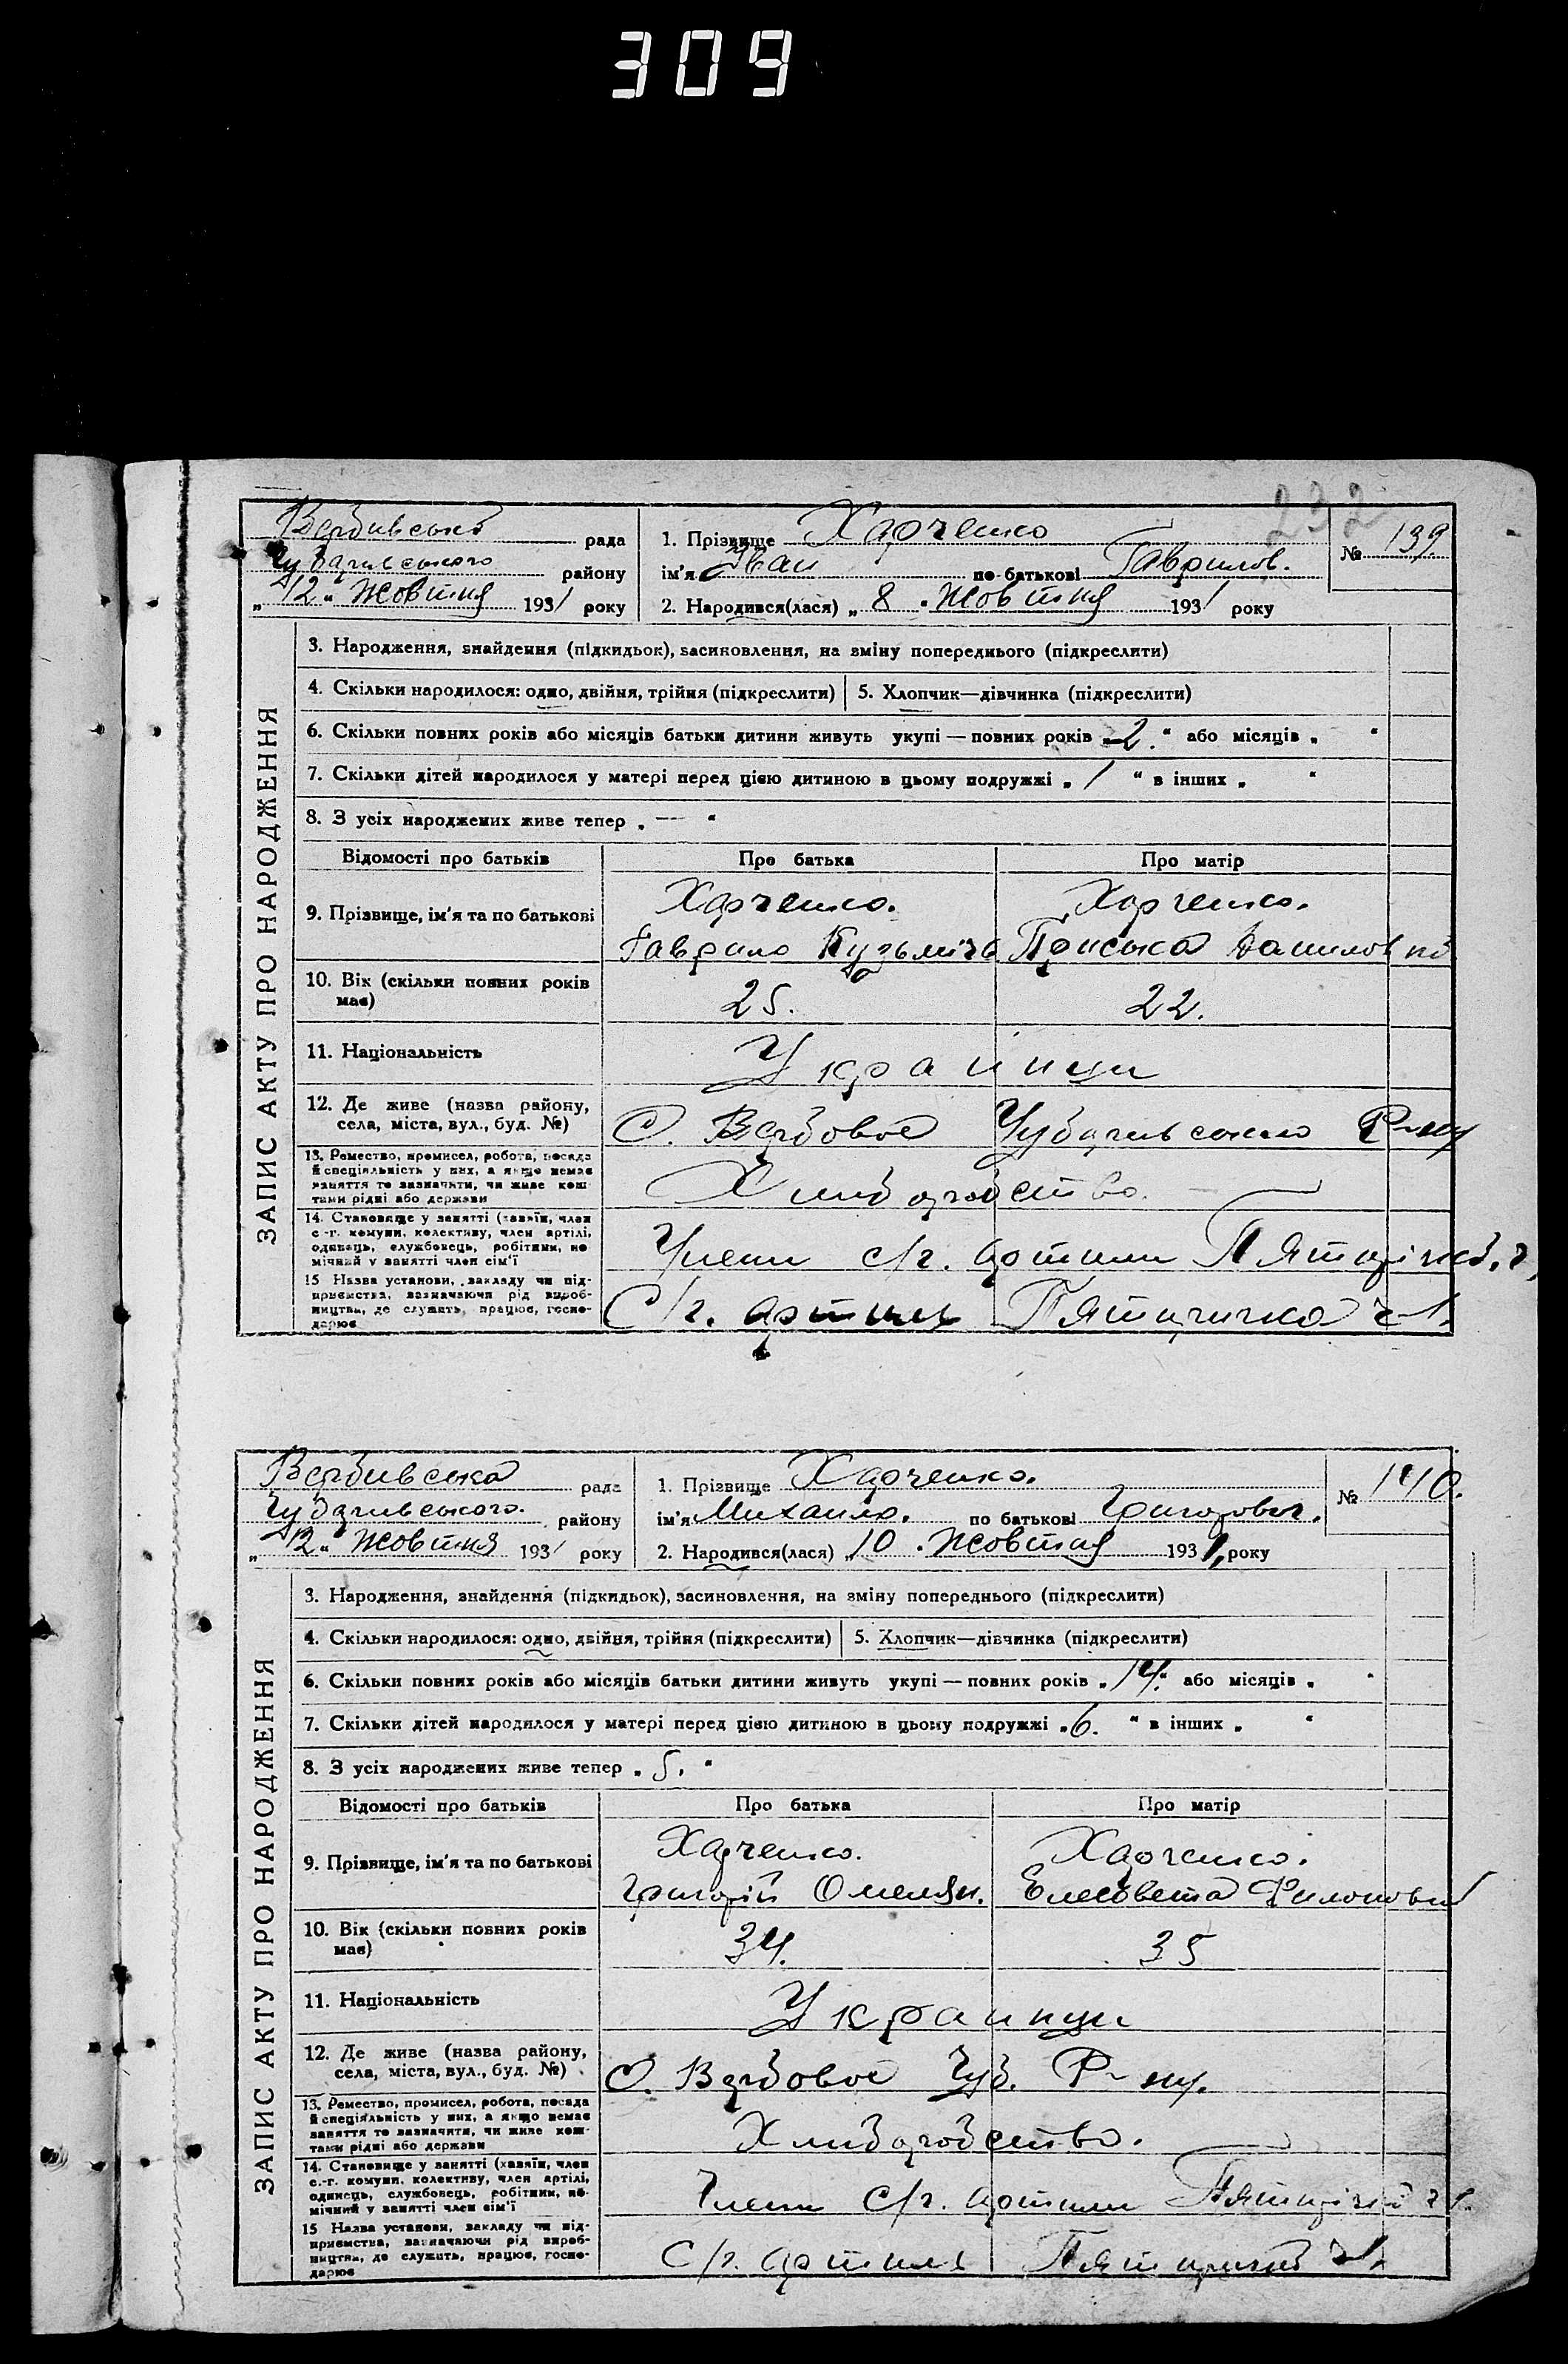 309
232
Вербивська рада
Чубаривського району
„12“ Жовтня 1931 року
1. Прізвище Харченко
ім'я Иван по батькові Гаврилов.
2. Народився(лася) „8 . Жовтня 1931 року
№ 139.
ЗАПИС АКТУ ПРО НАРОДЖЕННЯ
3. Народження, знайдення (підкидьок), засиновлення, на зміну попереднього (підкреслити)
4. Скільки народилося: одно, двійня, трійня (підкреслити) 5. Хлопчик—дівчинка (підкреслити)
6. Скільки повних років або місяців батьки дитини живуть укупі — повних років „2.“ або місяців „ “
7. Скільки дітей народилося у матері перед цією дитиною в цьому подружжі „ 1 “ в інших „ “
8. З усіх народжених живе тепер „ — “
Відомості про батьків Про батька Про матір
9. Прізвище, ім'я та по батькові Харченко. Харченко.
Гаврило Кузьмича Приська
10. Вік (скільки повних років має) 25. 22.
11. Національність Украинци
12. Де живе (назва району, села, міста, вул., буд. №) С. Вербовое Чубаривського Р-ну
13. Ремество, промисел, робота, посада й спеціяльність у них, а якщо немає заняття то зазначити, чи живе коштами рідні або держави
Хлиборобство.
14. Становище у занятті (хазяїн, член с.-г. комуни, колективу, член артілі, одинець, службовець, робітник, помічний у занятті член сім'ї
Члени с/г. артили Пятирічка.
15 Назва установи, закладу чи підприємства, зазначаючи рід виробництва, де служить, працює, господарює
С/г. артиль Пятиричка ч 1.
Вербивська рада
Чубаривського. району
„12“ Жовтня 1931 року
1. Прізвище Харченко.
ім'я Михаило. по батькові Григорович.
2. Народився(лася) „10 . Жовтня 1931, року
№ 140.
ЗАПИС АКТУ ПРО НАРОДЖЕННЯ
3. Народження, знайдення (підкидьок), засиновлення, на зміну попереднього (підкреслити)
4. Скільки народилося: одно, двійня, трійня (підкреслити) 5. Хлопчик—дівчинка (підкреслити)
6. Скільки повних років або місяців батьки дитини живуть укупі — повних років „14.“ або місяців „ “
7. Скільки дітей народилося у матері перед цією дитиною в цьому подружжі „6. “ в інших „ “
8. З усіх народжених живе тепер „ 5. “
Відомості про батьків Про батька Про матір
9. Прізвище, ім'я та по батькові Харченко. Харченко.
Григорій Омелян. Елесовета Филоновна
10. Вік (скільки повних років має) 34. 35
11. Національність Украинци
12. Де живе (назва району, села, міста, вул., буд. №) С. Вербовое Чуб. Р-ну.
13. Ремество, промисел, робота, посада й спеціяльність у них, а якщо немає заняття то зазначити, чи живе коштами рідні або держави
Хлиборобство.
14. Становище у занятті (хазяїн, член с.-г. комуни, колективу, член артілі, одинець, службовець, робітник, помічний у занятті член сім'ї
Члени с/г. артили Пятирічка ч 1.
15 Назва установи, закладу чи підприємства, зазначаючи рід виробництва, де служить, працює, господарює
С/г. артиль Пятиричка ч 1.